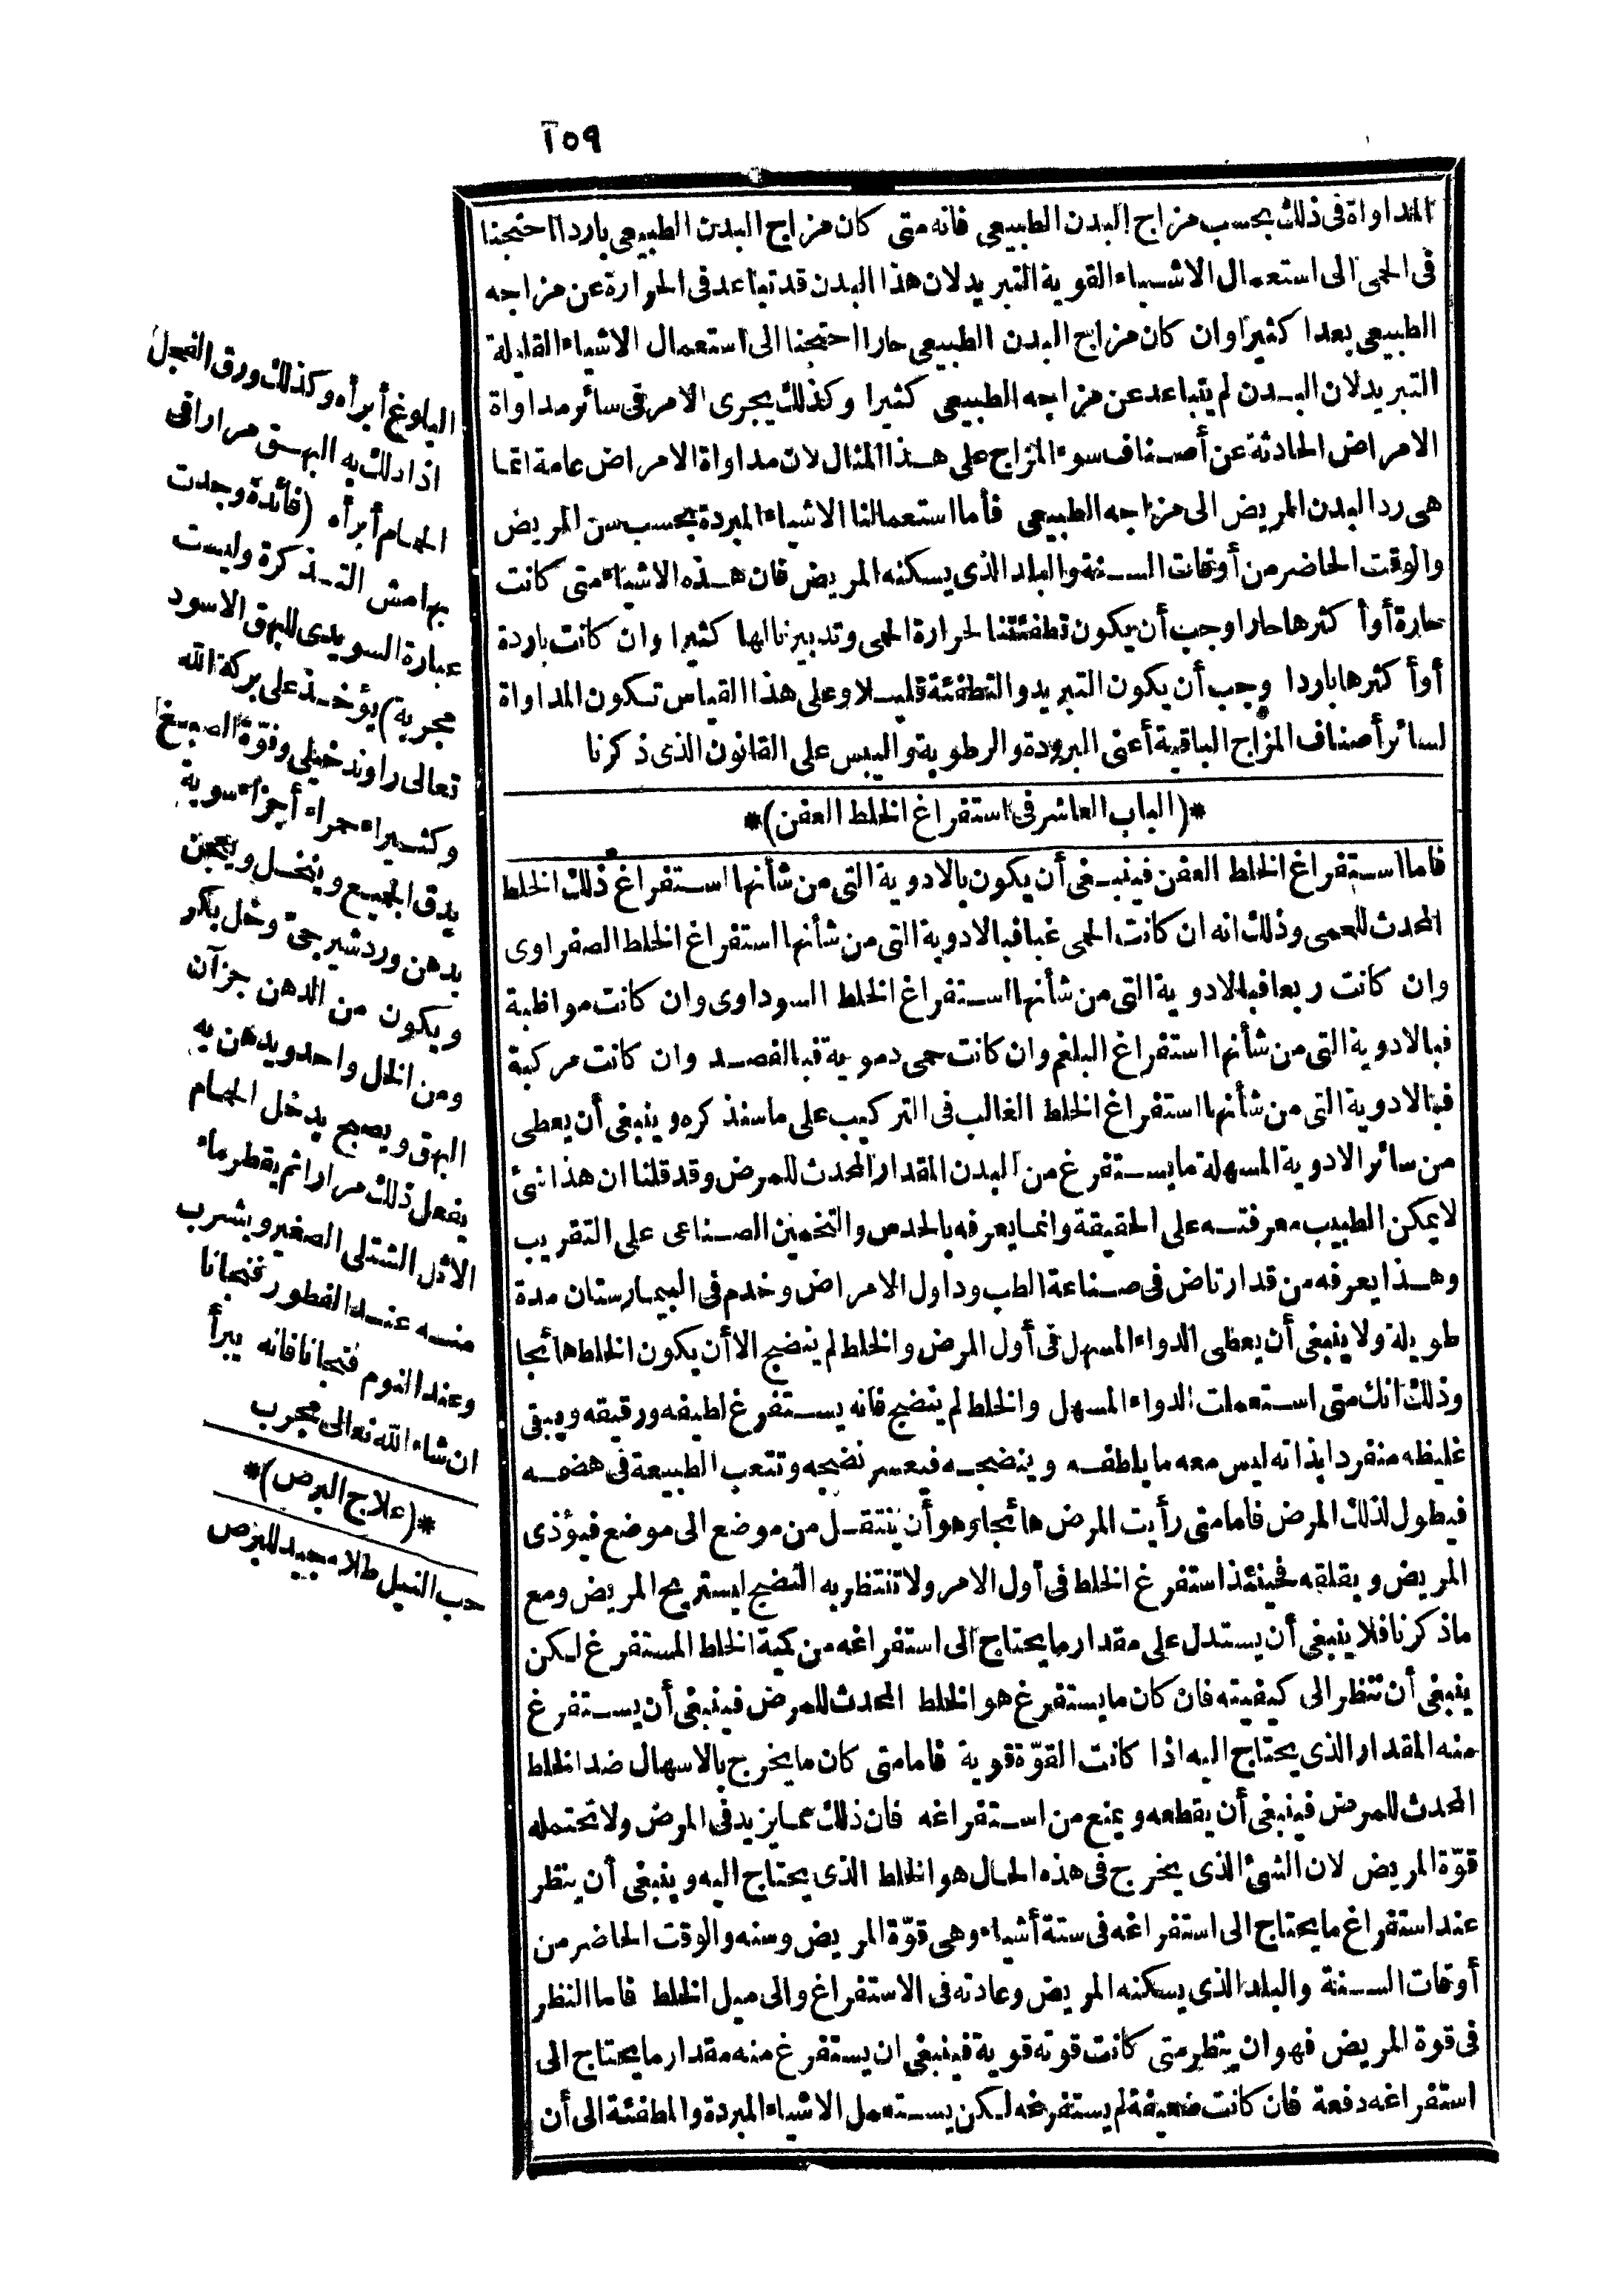 ١٥٩
المداواة في ذلك بحسب مزاج البدن الطبيعي فانه متى كان مزاج البدن الطبيعي باردا احتجنا
في الحمى الى استعمال الاشياء القوية التبريد لان هذا البدن قد تباعد في الحرارة عن مزاجه
الطبيعي بعدا كثيرا وان كان مزاج البدن الطبيعي حارا احتجنا الى استعمال الاشياء القليلة
التبريد لان البدن لم يتباعد عن مزاجه الطبيعي كثيرا وكذلك يجرى الامر في سائر مداواة
الامراض الحادثة عن أصناف سوء المزاج على هذا المثال لان مداواة الامراض عامة انما
هى رد البدن المريض الى مزاجه الطبيعي فأما استعمالنا الاشياء المبردة بحسب سن المريض
والوقت الحاضر من أوقات السنة والبلد الذى يسكنه المريض فان هذه الاشياء متى كانت
حارة أو أكثرها حارا وجب أن يكون تطفئتنا لحرارة الحمى وتدبيرنا لها كثيرا وان كانت باردة
أو أكثرها باردا وجب أن يكون التبريد والتطفئة قليلا وعلى هذا القياس تكون المداواة
لسائر أصناف المزاج الباقية أعنى البرودة والرطوبة واليبس على القانون الذى ذكرنا
*(الباب العاشر في استفراغ الخلط العفن)*
فاما استفراغ الخلط العفن فينبغى أن يكون بالادوية التى من شأنها استفراغ ذلك الخلط
المحدث للحمى وذلك انه ان كانت الحمى غبا فبالادوية التى من شأنها استفراغ الخلط الصفراوى
وان كانت ربعا فبالادوية التى من شأنها استفراغ الخلط السوداوى وان كانت مواظبة
فبالادوية التى من شأنها استفراغ البلغم وان كانت حمى دموية فبالفصد وان كانت مركبة
فبالادوية التى من شأنها استفراغ الخلط الغالب في التركيب على ما سنذكره وينبغى أن يعطى
من سائر الادوية المسهلة ما يستفرغ من البدن المقدار المحدث للمرض وقد قلنا ان هذا شئ
لا يمكن الطبيب معرفته على الحقيقة وانما يعرفه بالحدس والتخمين الصناعى على التقريب
وهذا يعرفه من قد ارتاض في صناعة الطب وداول الامراض وخدم في البيمارستان مدة
طويلة ولا ينبغى أن يعطى الدواء المسهل في أول المرض والخلط لم ينضج الا أن يكون الخلط هائجا
وذلك انك متى استعملت الدواء المسهل والخلط لم ينضج فانه يستفرغ لطيفه ورقيقه ويبقى
غليظه منفردا بذاته ليس معه ما يلطفه وينضجه فيعسر نضجه وتتعب الطبيعة في هضمه
فيطول لذلك المرض فاما متى رأيت المرض هائجا وهو أن ينتقل من موضع الى موضع فيؤذى
المريض ويقلقه فحينئذ استفرغ الخلط في أول الامر ولا تنتظر به النضج ليستريح المريض ومع
ماذكرنا فلا ينبغى أن يستدل على مقدار ما يحتاج الى استفراغه من كمية الخلط المستفرغ لكن
ينبغى أن تنظر الى كيفيته فان كان ما يستفرغ هو الخلط المحدث للمرض فينبغى أن يستفرغ
منه المقدار الذى يحتاج اليه اذا كانت القوّة قوية فاما متى كان ما يخرج بالاسهال ضد الخلط
المحدث للمرض فينبغى أن يقطعه ويمنع من استفراغه فان ذلك مما يزيد في المرض ولا تحتمله
قوّة المريض لان الشئ الذى يخرج في هذه الحال هو الخلط الذى يحتاج اليه وينبغى أن ينظر
عند استفراغ ما يحتاج الى استفراغه في ستة أشياء وهى قوّة المريض وسنه والوقت الحاضر من
أوقات السنة والبلد الذى يسكنه المريض وعادته في الاستفراغ والى ميل الخلط فاما النظر
في قوة المريض فهو ان ينظر متى كانت قوته قوية فينبغى ان يستفرغ منه مقدار ما يحتاج الى
استفراغه دفعة فان كانت ضعيفة لم يستفرغه لكن يستعمل الاشياء المبردة والمطفئة الى أن
البلوغ أبرأه وكذلك ورق الفجل
اذا دلك به البهق مرارا فى
الحمام أبرأه (فائدة وجدت
بهامش التذكرة وليست
عبارة السويدى للبهق الاسود
مجربة) يؤخذ على بركة الله
تعالى راوند خيلى وفوّة الصبغ
وكثيراء حمراء أجزاء سوية
يدق الجميع وينخل ويعجن
بدهن ورد شيرجى وخل بكر
ويكون من الدهن جزآن
ومن الخل واحد ويدهن به
البهق ويصبح يدخل الحمام
يفعل ذلك مرارا ثم يقطر ماء
الاثل الشتلى الصغير ويشرب
منه عند الفطور فنجانا
وعند النوم فنجانا فانه يبرأ
ان شاء الله تعالى مجرب
*(علاج البرص)*
حب النيل طلاء جيد للبرص